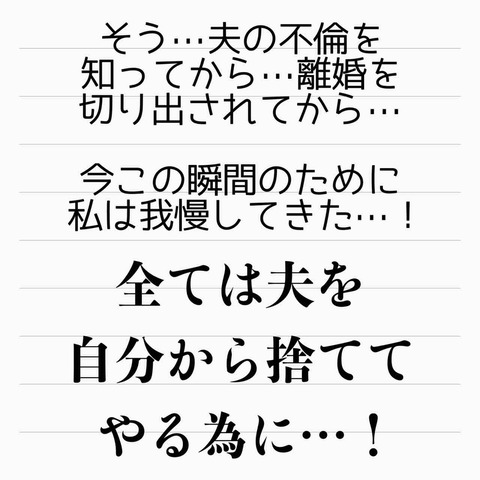 そう…夫の不倫を
知ってから…離婚を
切り出されてから…
今この瞬間のために
私は我慢してきた…！
全ては夫を
自分から捨てて
やる為に…！